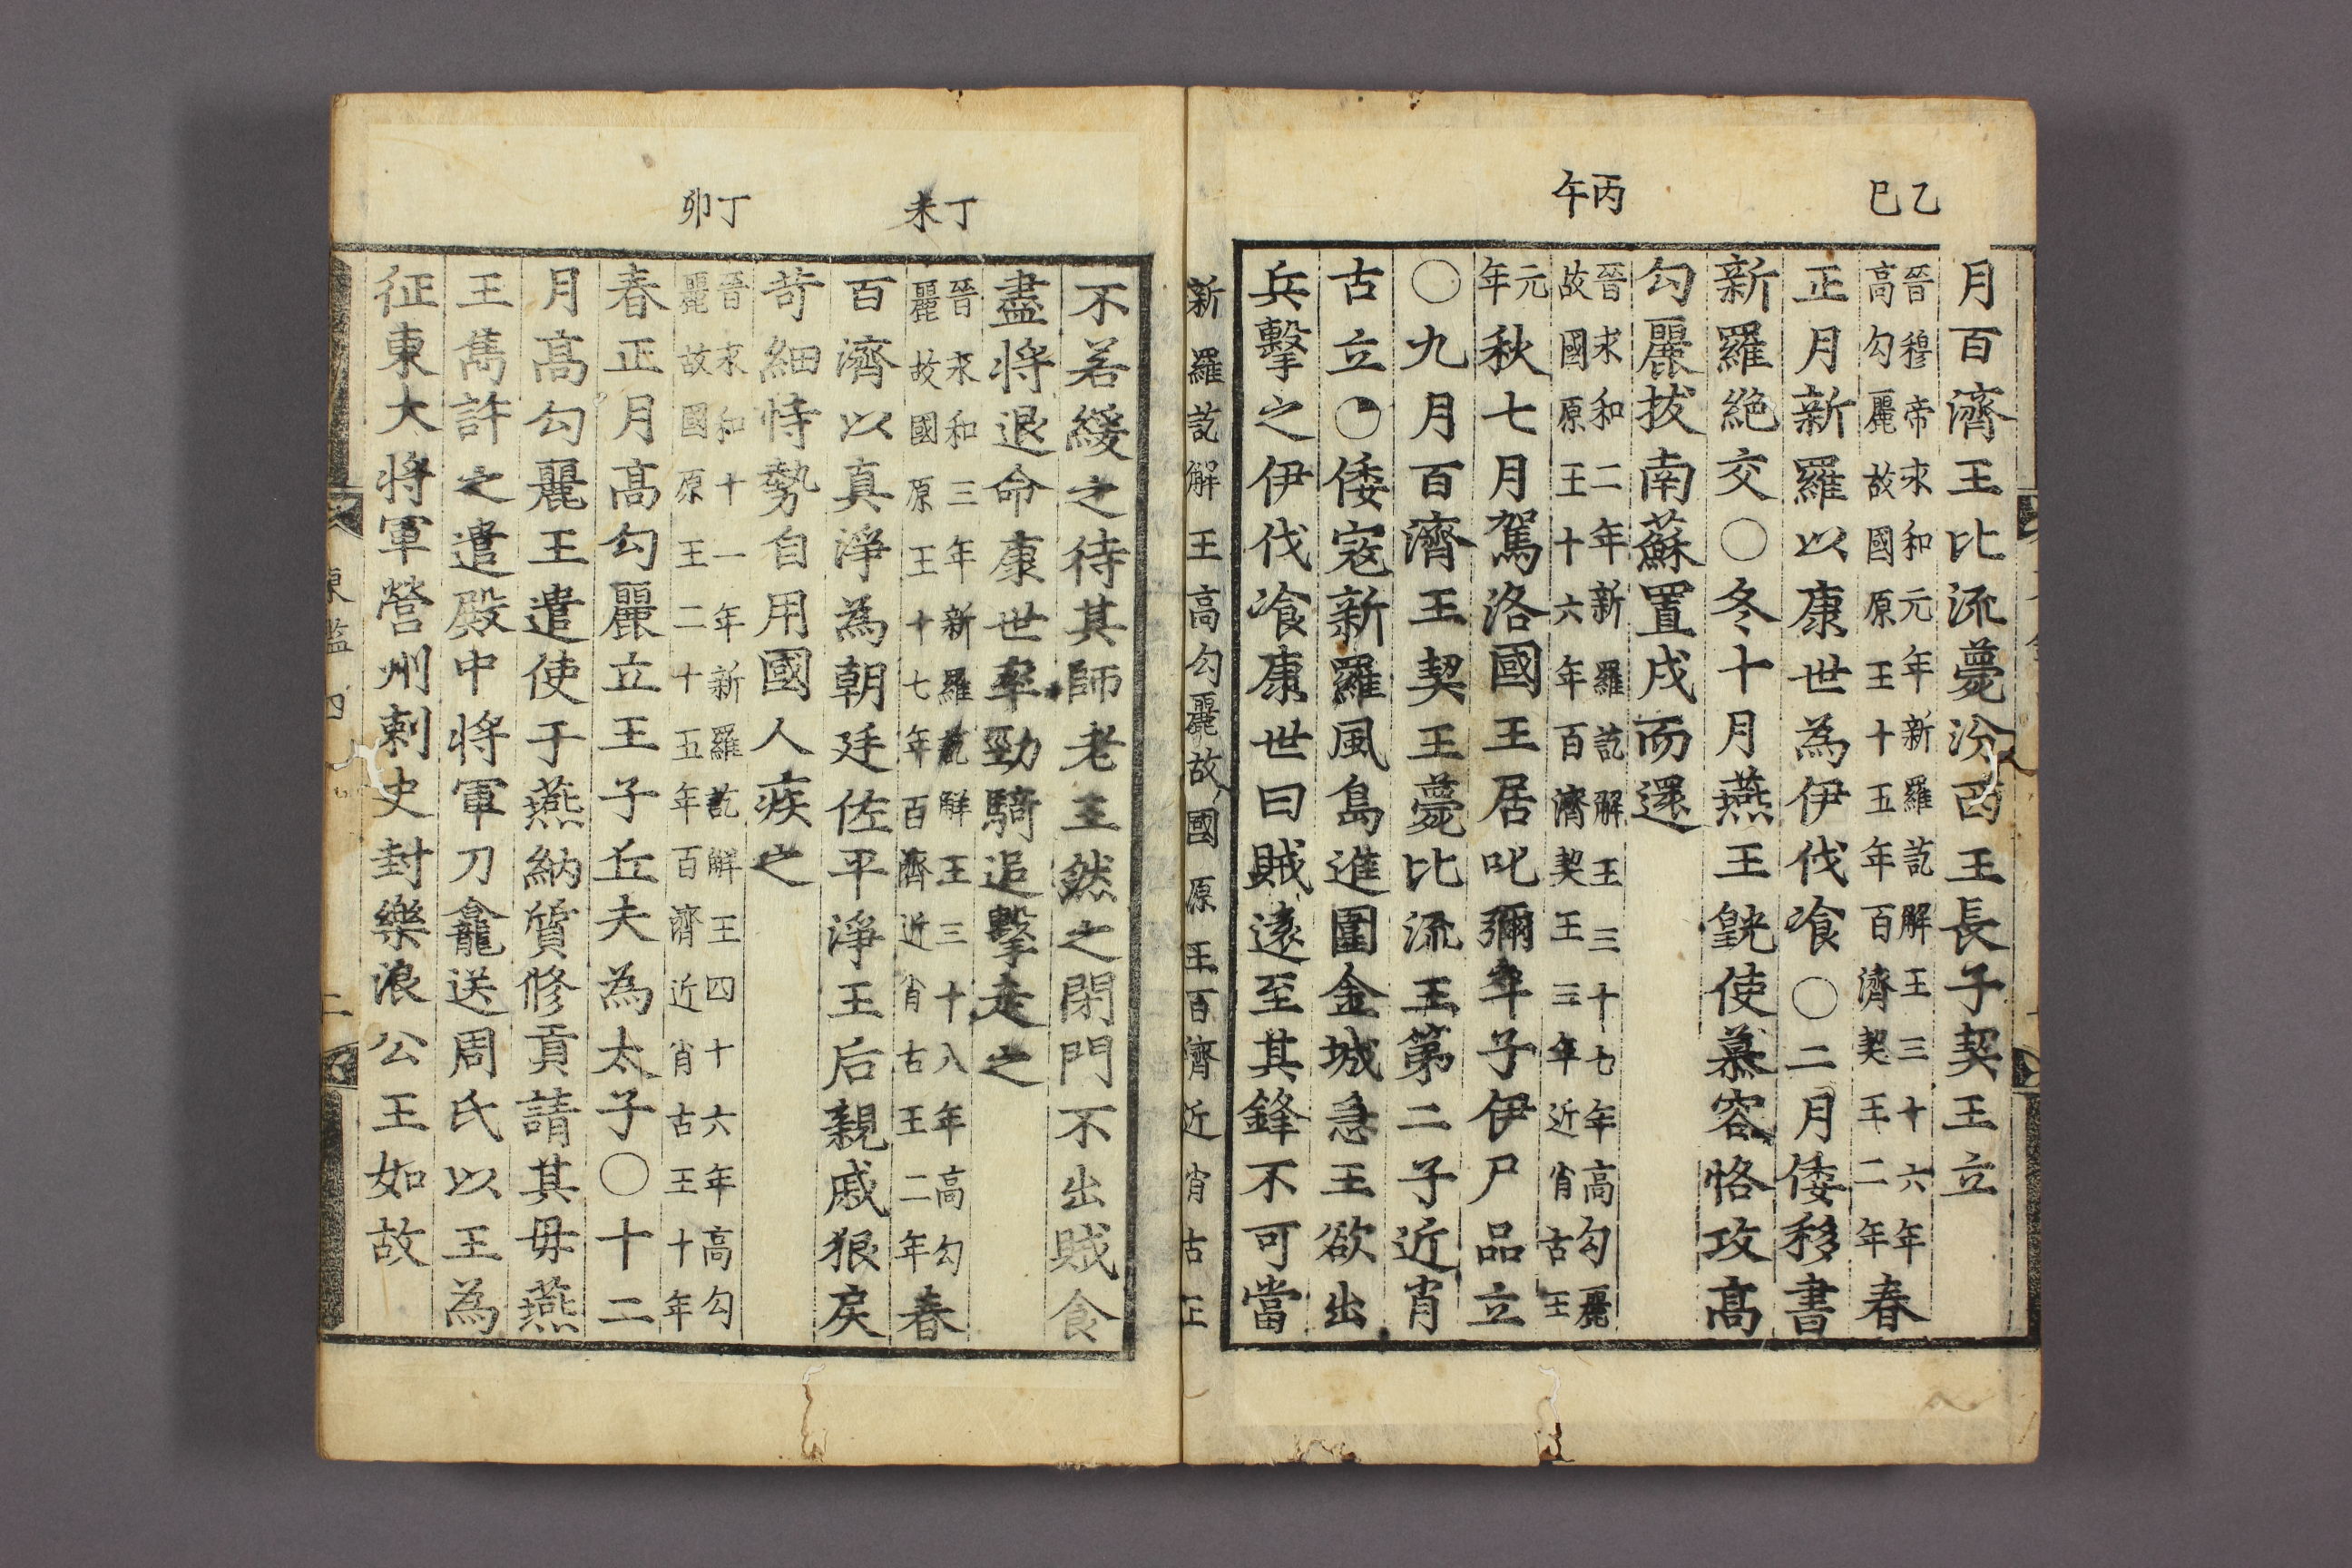 乙巳
丙午
月百濟王比流薨汾西王長子契王立
晉穆帝永和元年新羅訖解王三十六年
高勾麗故國原王十五年百濟契王二年春
正月新羅以康世為伊伐飡〇二月倭移書
新羅絶交〇冬十月燕王皝使慕容恪攻高
勾麗拔南蘇置戍而還
晉永和二年新羅訖解王三十七年高勾麗
故國原王十六年百濟契王三年近肖古王
元年秋七月駕洛國王居叱彌卒子伊尸品立
〇九月百濟王契王薨比流王第二子近肖
古立〇倭寇新羅風島進圍金城急王欲出
兵擊之伊伐飡康世曰賊遠至其鋒不可當
新羅訖解王高勾麗故國原王百濟近肖古王
丁未
丁卯
不若緩之待其師老王然之閉門不出賊食
盡將退命康世率勁騎追擊走之
晉永和三年新羅訖解王三十八年高勾
麗故國原王十七年百濟近肖古王二年春
百濟以真淨為朝廷佐平淨王后親戚狠戾
苛細恃勢自用國人疾之
晉永和十一年新羅訖解王四十六年高勾
麗故國原王二十五年百濟近肖古王十年
春正月高勾麗立王子丘夫為太子〇十二
月高勾麗王遣使于燕納質修貢請其毋燕
王雋許之遣殿中將軍刀龕送周氏以王為
征東大將軍營州刺史封樂浪公王如故
東鑑四
二